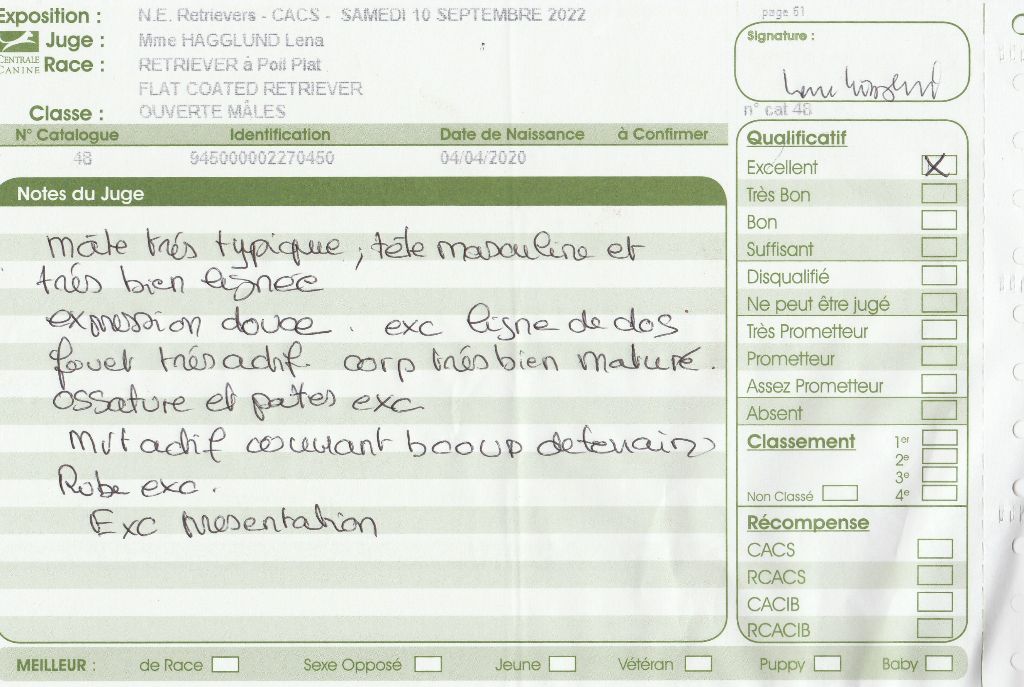 Exposition : N.E. Retrievers - CACS - SAMEDI 10 SEPTEMBRE 2022
page 61
CENTRALE CANINE
Juge : Mme HAGGLUND Lena
Race : RETRIEVER à Poil Plat
FLAT COATED RETRIEVER
Classe : OUVERTE MÂLES
Signature :
n° cat 48
N° Catalogue Identification Date de Naissance à Confirmer
48 945000002270450 04/04/2020
Notes du Juge
mâle trés typique, tête masculine et
trés bien lignée
expression douce. exc ligne de dos
fouet trés actif. corp trés bien maturé.
ossature et pates exc
Mvt actif couvrant bcoup de terrain
Robe exc.
Exc presentation
Qualificatif
Excellent X
Très Bon
Bon
Suffisant
Disqualifié
Ne peut être jugé
Très Prometteur
Prometteur
Assez Prometteur
Absent
Classement 1er
2e
3e
Non Classé 4e
Récompense
CACS
RCACS
CACIB
RCACIB
MEILLEUR : de Race Sexe Opposé Jeune Vétéran Puppy Baby